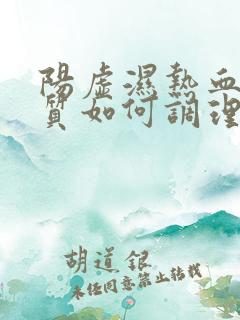 陽虛濕熱血
質如何調理
胡道銀
未经同意禁止转载